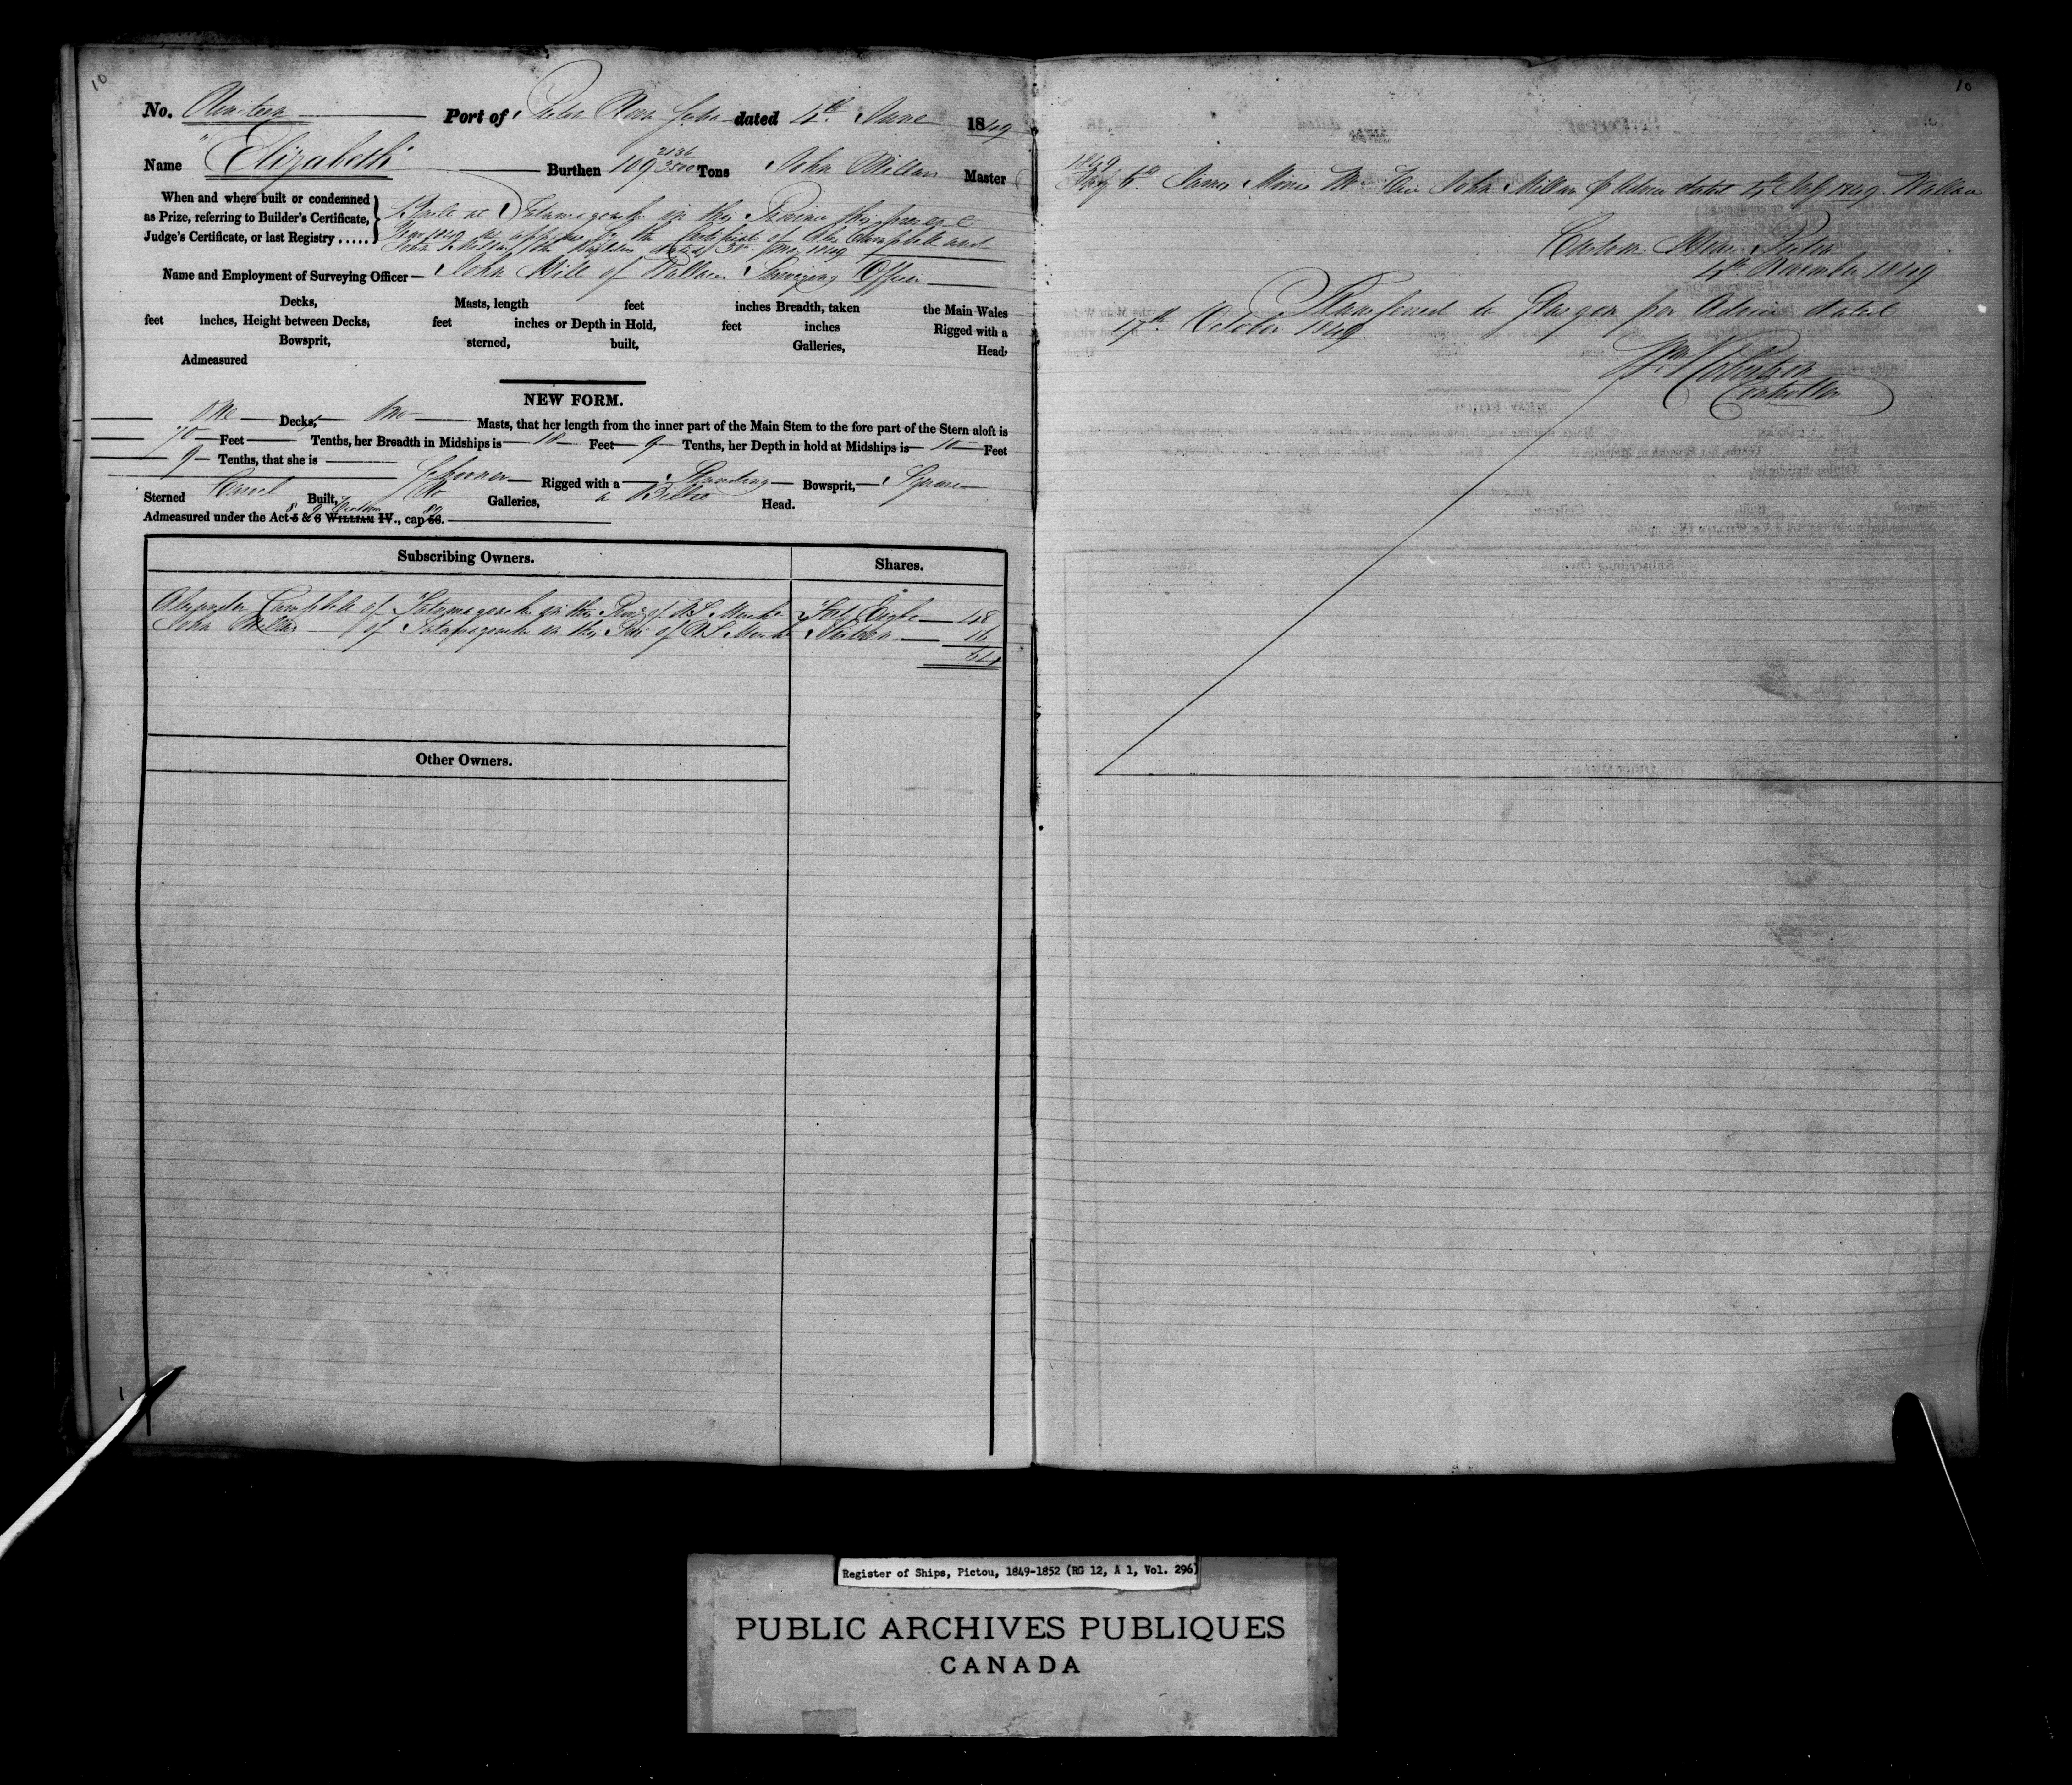 10
No. Nineteen Port of Pictou Nova Scotia dated 4th June 1849
Name "Elizabeth" Burthen 109 2136/3500 Tons John Millar Master
When and where built or condemned
as Prize, referring to Builder's Certificate,
Judge's Certificate, or last Registry.....
Built at Tatamagouche in this Province this present
Year 1849 as appears by the Certificate of Alexr Campbell and
John Millar the Builders dated June 1849
Name and Employment of Surveying Officer— John Hill of Wallace Surveying Officer
Decks, Masts, length feet inches Breadth, taken the Main Wales
feet inches, Height between Decks, feet inches or Depth in Hold, feet inches Rigged with a
Bowsprit, sterned, built, Galleries, Head,
Admeasured
NEW FORM.
One Decks, Two Masts, that her length from the inner part of the Main Stem to the fore part of the Stern aloft is
70 Feet Tenths, her Breadth in Midships is 18 Feet 9 Tenths, her Depth in hold at Midships is 10 Feet
9 Tenths, that she is Schooner Rigged with a Standing Bowsprit, Square
Sterned Carvel Built, No Galleries, a Billet Head.
Admeasured under the Act 5 & 6 WILLIAM IV., cap 56.
8 9 Victoria 89
Subscribing Owners. Shares.
Alexander Campbell of Tatamagouche in the Prov of NS Mercht Forty Eight 48
John Millar of Tatamagouche in the Prov of NS Mercht Sixteen 16
64
Other Owners.
1
10
1849
July 6th James Master Vice John Millar p Advice dated 4th July 1849 Wallace
Custom House Pictou
November 1849
Transferred to Glasgow per Advice dated
17th October 1849.
Wm Robertson
Controller
Register of Ships, Pictou, 1849-1852 (RG 12, A 1, Vol. 296)
PUBLIC ARCHIVES PUBLIQUES
CANADA